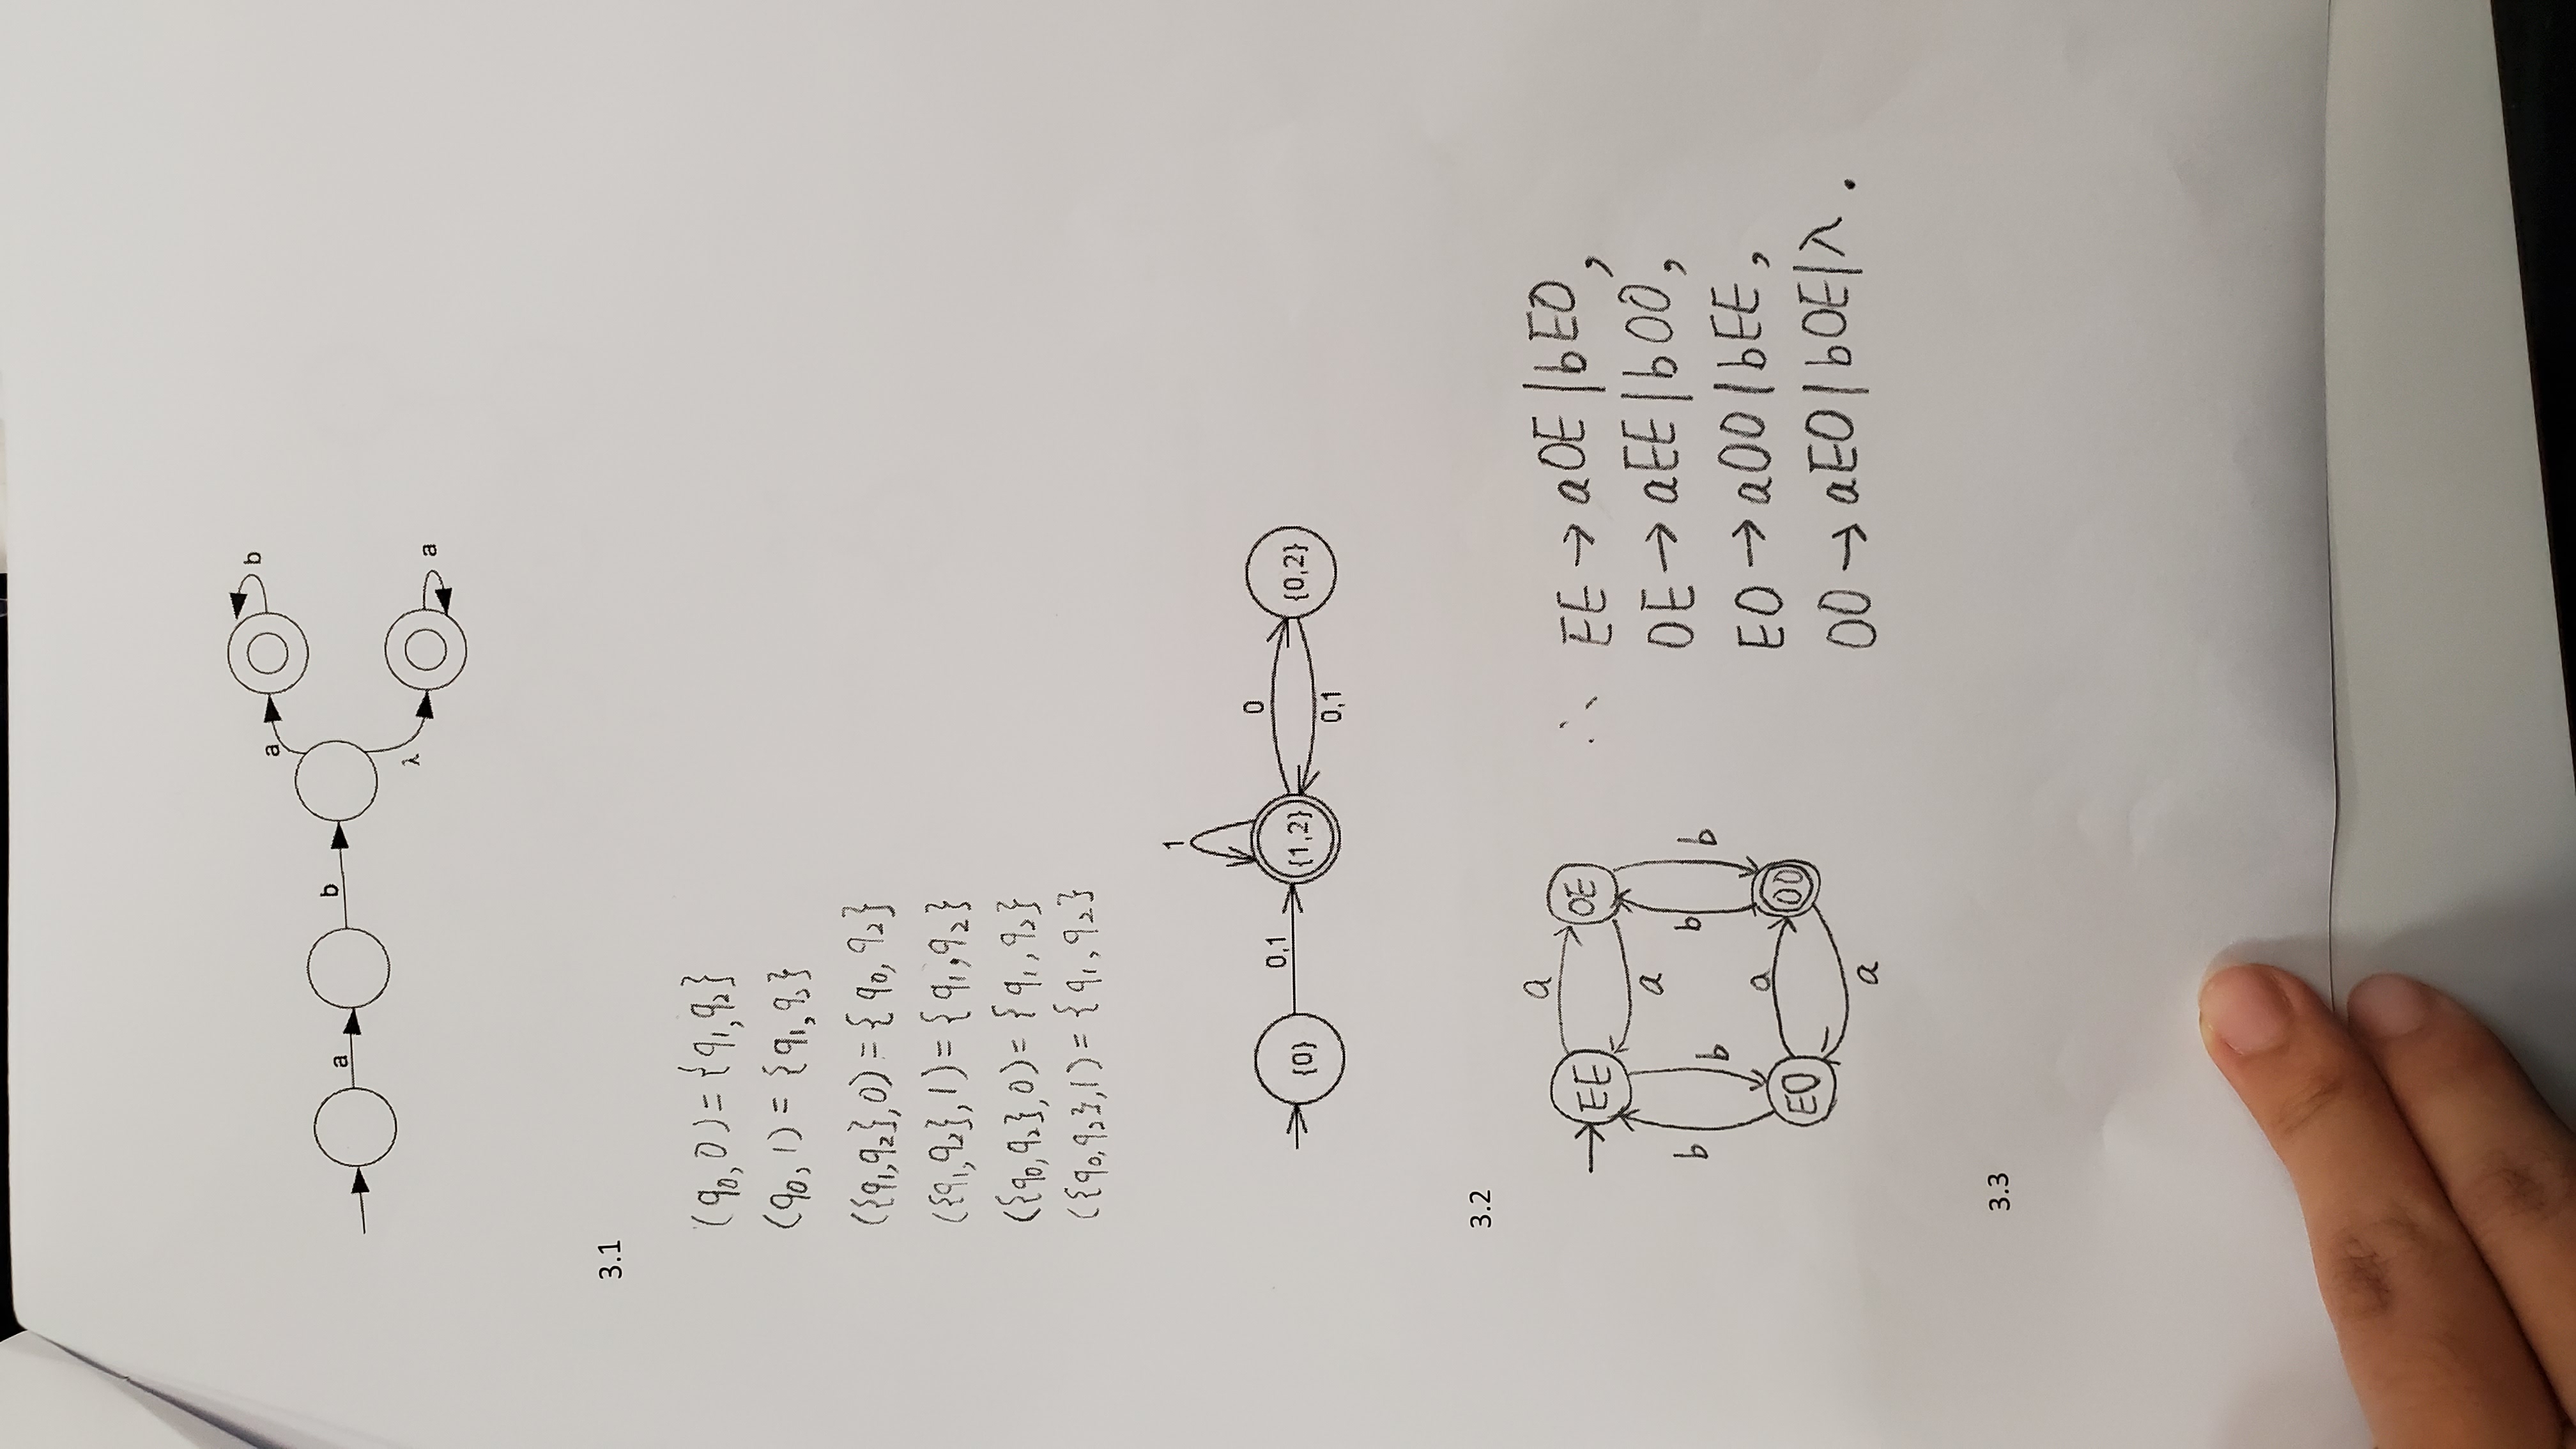 a b a b
λ a
3.1
(q₀,0)={q₁,q₂}
(q₀,1)={q₁,q₂}
({q₁,q₂},0)={q₀,q₂}
({q₁,q₂},1)={q₁,q₂}
({q₀,q₂},0)={q₁,q₂}
({q₀,q₂},1)={q₁,q₂}
1
{0} 0,1 {1,2} 0 {0,2}
0,1
3.2
a
EE OE
a
b b b b
a
EO OO
a
∴ EE→aOE|bEO,
OE→aEE|bOO,
EO→aOO|bEE,
OO→aEO|bOE|λ.
3.3